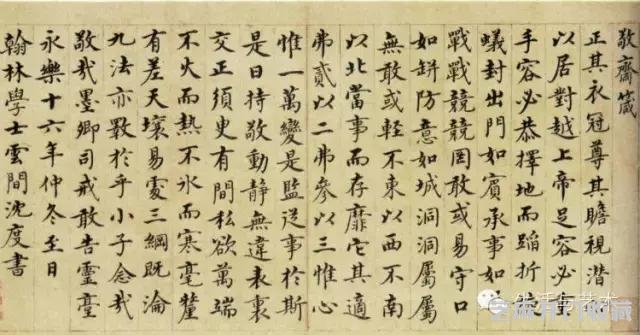 敬齋箴
正其衣冠尊其瞻視潛
以居對越上帝足容必重
手容必恭擇地而蹈折
蟻封出門如賓承事如
戰戰兢兢罔敢或易守口
如缾防意如城洞洞屬屬
無敢或輕不東以西不南
以北當事而存靡它其適
弗貳以二弗參以三惟心
惟一萬變是監從事於斯
是曰持敬動靜無違表裏
交正須臾有間私欲萬端
不火而熱不冰而寒毫釐
有差天壤易處三綱既淪
九法亦斁於乎小子念哉
敬哉墨卿司戒敢告靈臺
永樂十六年仲冬至日
翰林學士雲間沈度書